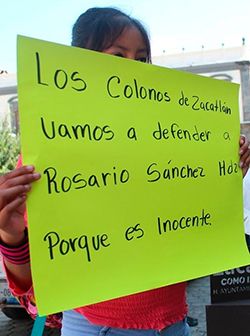 Los Colonos de Zacatlán
Vamos a defender a
Rosario Sánchez Hdz
Porque es Inocente.
COMO I
H. AYUNTAMIEN